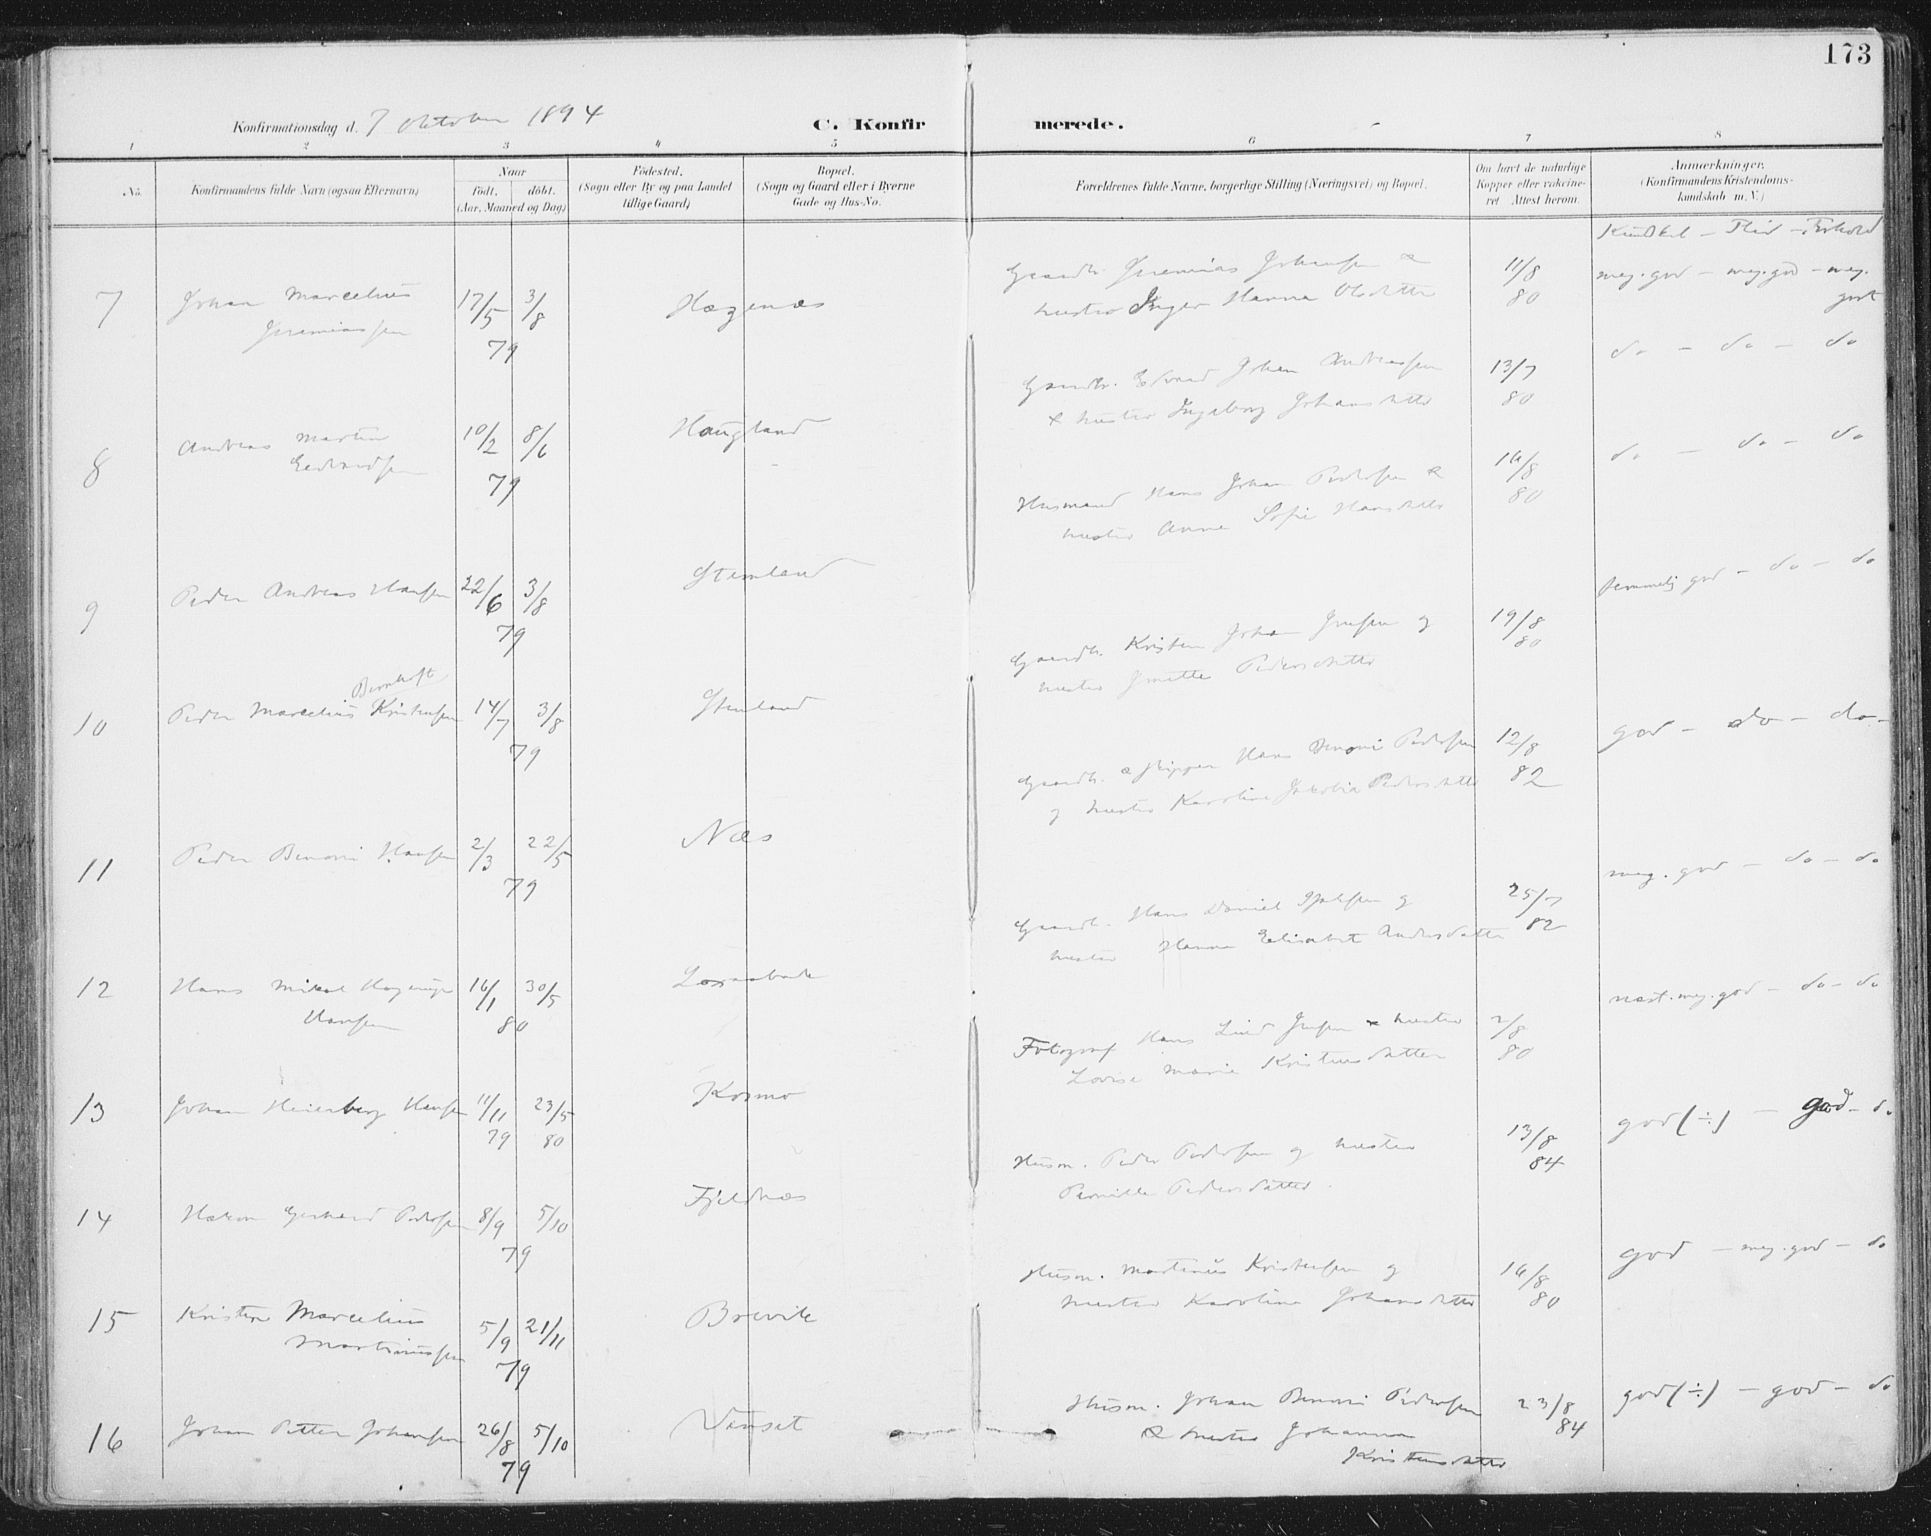 173
Konfirmationsdag d. 7 Oktober 1894
C. Konfirmerede.
1 2 3 4 5 6 7 8
No.
Konfirmandens fulde Navn (ogsaa Efternavn)
Naar
født. døbt.
(Aar, Maaned og Dag)
Fødested.
(Sogn eller By og paa Landet
tillige Gaard)
Bopæl.
(Sogn og Gaard eller i Byerne
Gade og Hus-No.
Forældrenes fulde Navne, borgerlige Stilling (Næringsvei) og Bopæl.
Om havt de naturlige
Kopper eller vakcine-
ret Attest herom.
Anmærkninger.
(Konfirmandens Kristendoms-
kundskab m. V.)
Kundskab – Flid – Forhold
7 Johan Marcelius
Jeremiassen
17/5 3/8
79
Hægenæs
Gaardb. Jeremias Johansen &
hustro Inger Hanna Olsdatter
11/8
80
meg. god – meg. god – meg.
godt
8 Andreas Martin
Edvardsen
10/2 8/6
79
Haugland
Gaardb. Edvard Johan Andreassen
& hustro Ingeborg Johansdatter
13/7
80
do – do – do
9 Peder Andreas Hansen
22/6 3/8
79
Stenland
Husmand Hans Johan Pedersen &
hustro Anne Sofie Hansdatter
16/8
80
do – do – do
10 Peder Marcelius Bernhoft Kristensen
14/7 3/8
79
Stenland
Gaardb. Kristen Johan Jensen og
hustro Pedersdatter
19/8
80
temmelig god – do – do
11 Peder Benoni Hansen
2/3 22/5
79
Næs
Gaardb. & skipper Hans Benoni Pedersen
og hustro Karoline Jakobia Pedersdatter
12/8
82
god – do – do –
12 Hans Mikal
Hansen
16/1 30/5
80
Gaardb. Hans Daniel og
hustro Hanna Elisabet Andersdatter
25/7
82
meg. god – do – do
13 Johan Heierberg Hansen
11/11 23/5
79 80
Kosmo
Fotograf Hans Lind Jensen & hustro
Lovise Marie Kristensdatter
2/8
80
næst. meg. god – do – do
14 Hakon Gerhard Pedersen
8/9 5/10
79
Fjeldnæs
Husm. Peder Pedersen og hustro
Pernille Pedersdatter.
13/8
84
god (÷) – god – do
15 Kristen Marcelius
Martinussen
5/9 21/11
79
Brevik
Husm. Martinus Kristensen og
hustro Karoline Johansdatter
16/8
80
god – meg. god – do
16 Johan Petter Johansen
26/8 5/10
79
Valnset
Husm. Johan Benoni Pedersen
& hustro Johanna
Kristensdatter
23/8
84
god (÷) – god – do